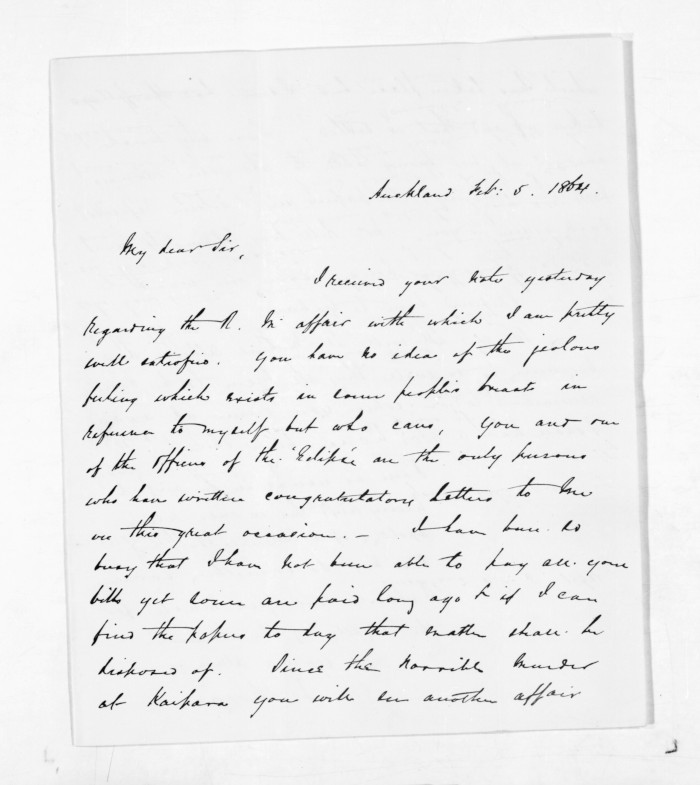 Auckland Feb: 5. 1864.
My dear Sir,
I received your note yesterday
regarding the R. M. affair with which I am pretty
well satisfied. You have no idea of the jealous
feeling which exists in some people's breasts in
reference to myself but who cares, you and one
of the officers of the 'Eclipse' are the only persons
who have written congratulatory letters to me
on this great occasion. — I have been so
busy that I have not been able to pay all your
bills yet some are paid long ago & if I can
find the papers to day that matter shall be
disposed of. Since the horrible murder
at Kaipara you will see another affair